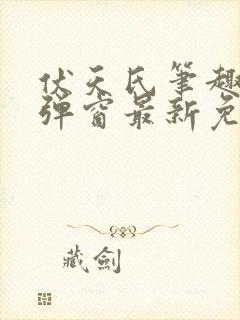 伏天氏笔趣
弹窗最新免
藏劍